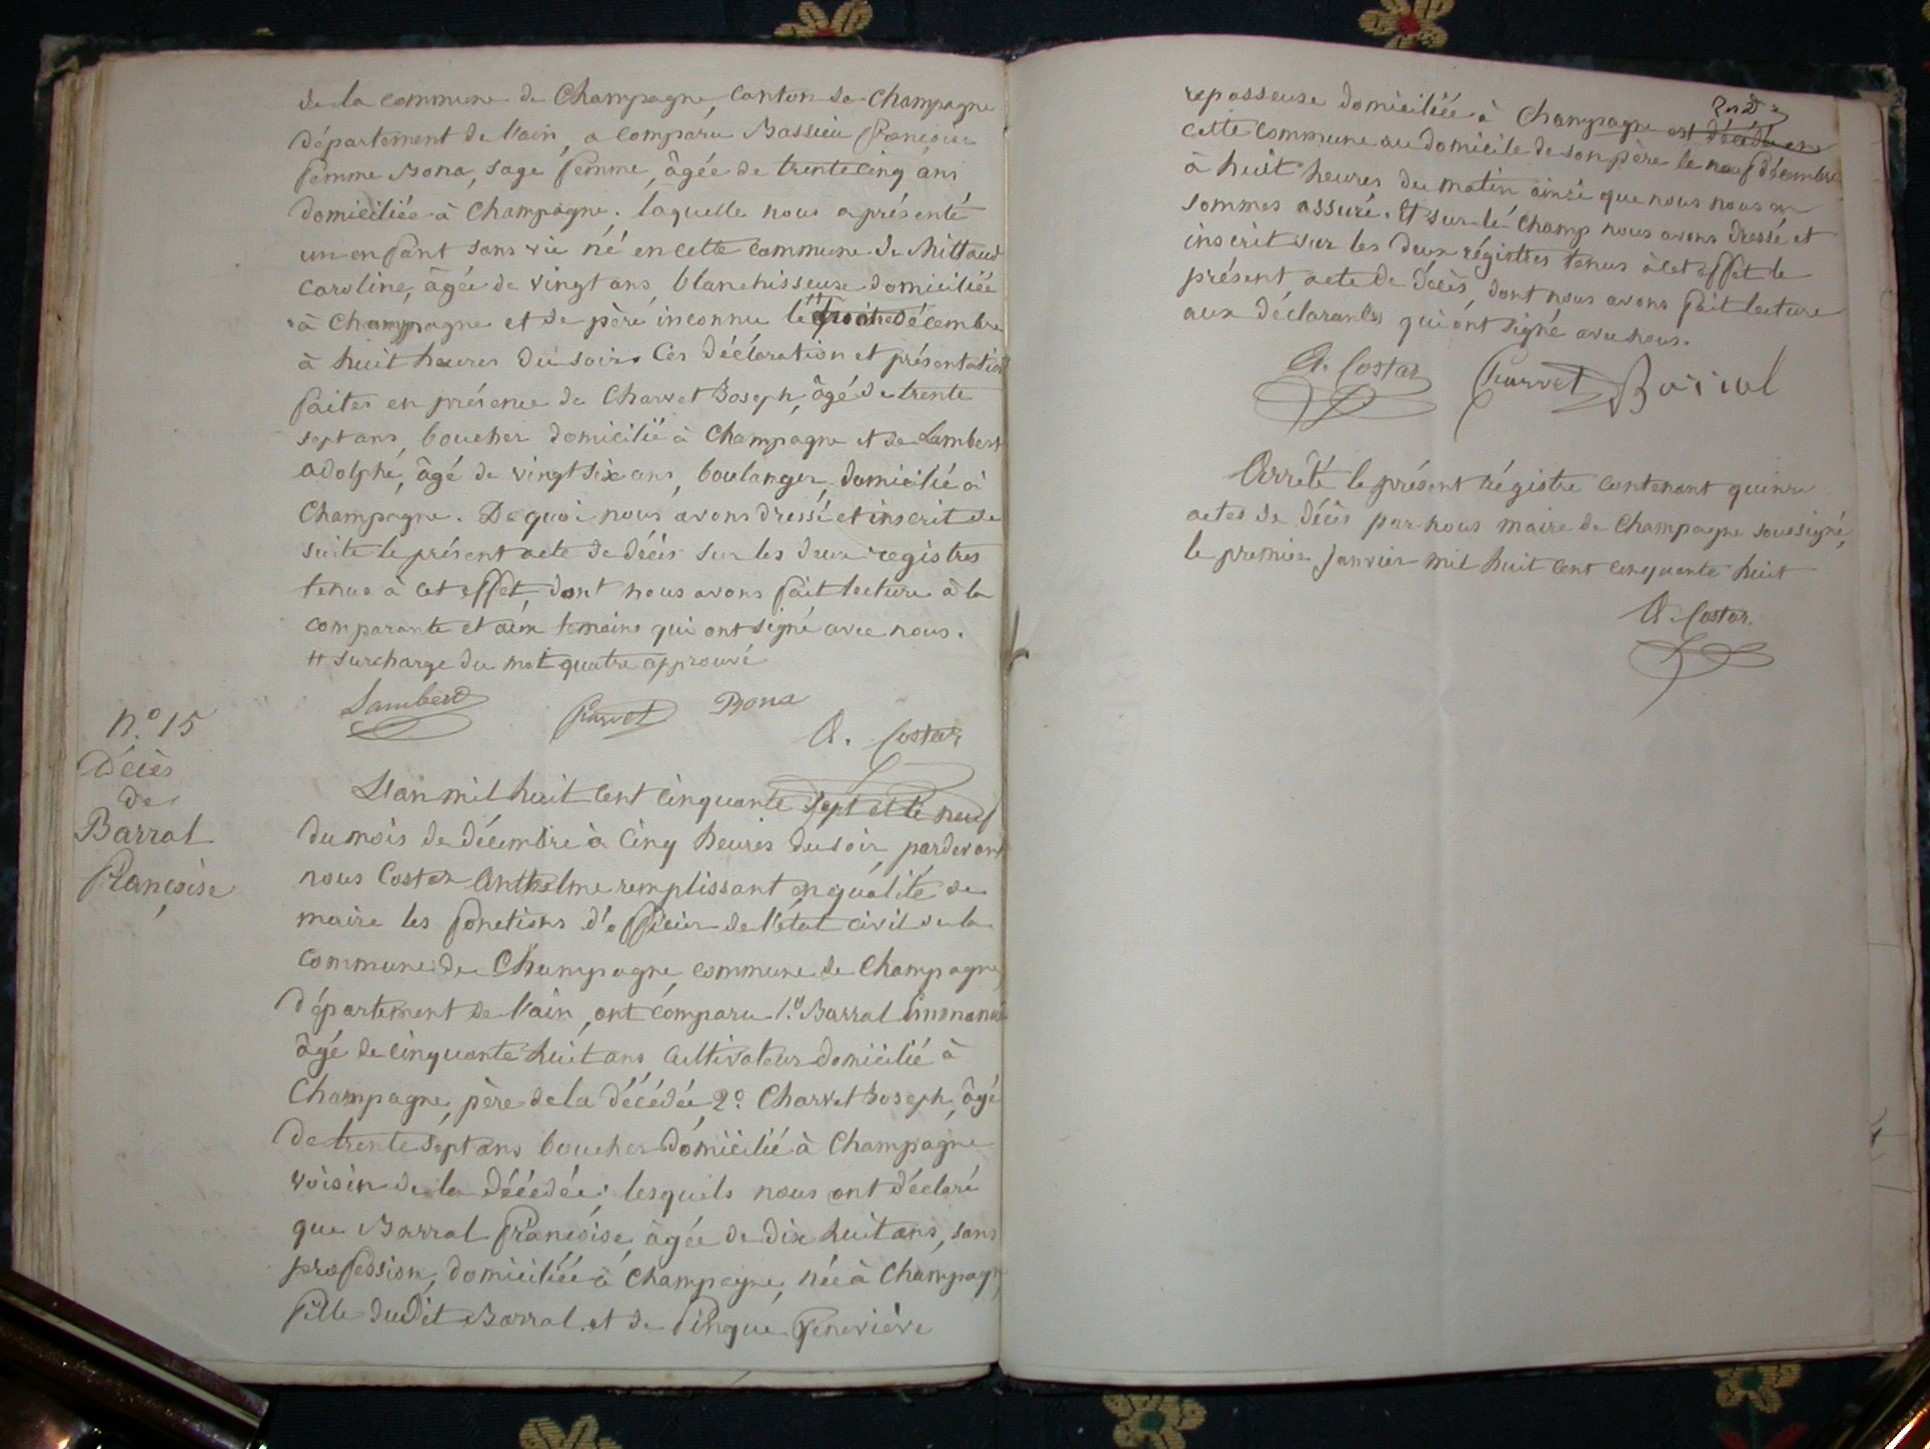 de la commune de Champagne, Canton de Champagne
département de l'ain, a comparu Massieu françoise
femme Bona, sage femme, âgée de trente cinq ans
domiciliée à Champagne. laquelle nous a présenté
un enfant sans vie né en cette commune de Mittaud
Caroline, âgée de vingt ans, blanchisseuse domiciliée
à Champagne et de père inconnu le # quatre décembre
à huit heures du soir. Ces déclaration et présentation
faites en présence de Charvet Joseph, âgé de trente
sept ans, boucher domicilié à Champagne et de Lambert
adolphe, âgé de vingt six ans, boulanger, domicilié à
Champagne. De quoi nous avons dressé et inscrit de
suite le présent acte de décès sur les deux registres
tenus à cet effet, dont nous avons fait lecture à la
comparante et aux temoins qui ont signé avec nous.
# surcharge du mot quatre approuvé
Lambert Charvet Bona
A. Costaz
n.° 15
Décès
de
Barral
françoise
L'an mil huit cent cinquante sept et le neuf
du mois de décembre à cinq heures du soir, pardevant
nous Costaz Anthelme remplissant en qualité de
maire les fonctions d'officier de l'état civil de la
commune de Champagne, commune de Champagne,
département de l'ain, ont comparu 1.° Barral
âgé de cinquante huit ans, cultivateur domicilié à
Champagne, père de la décédée 2.° Charvet Joseph, âgé
de trente sept ans boucher domicilié à Champagne
voisin de la décédée; lesquels nous ont déclaré
que Barral françoise, âgée de dix huit ans, sans
profession, domiciliée à Champagne, née à Champagne,
fille dudit Barral et de Pingue Geneviève
repasseuse domiciliée à Champagne est décédée en
cette commune au domicile de son père le neuf décembre
à huit heures du matin ainsi que nous nous en
sommes assuré. Et sur le champ nous avons dressé et
inscrit sur les deux régistres tenus à cet effet le
présent acte de décès, dont nous avons fait lecture
aux déclarants qui ont signé avec nous.
A. Costaz Charvet Barral
Arrêté le présent régistre contenant quinze
actes de décès par nous maire de Champagne soussigné,
le premier Janvier mil huit cent cinquante huit
A. Costaz.